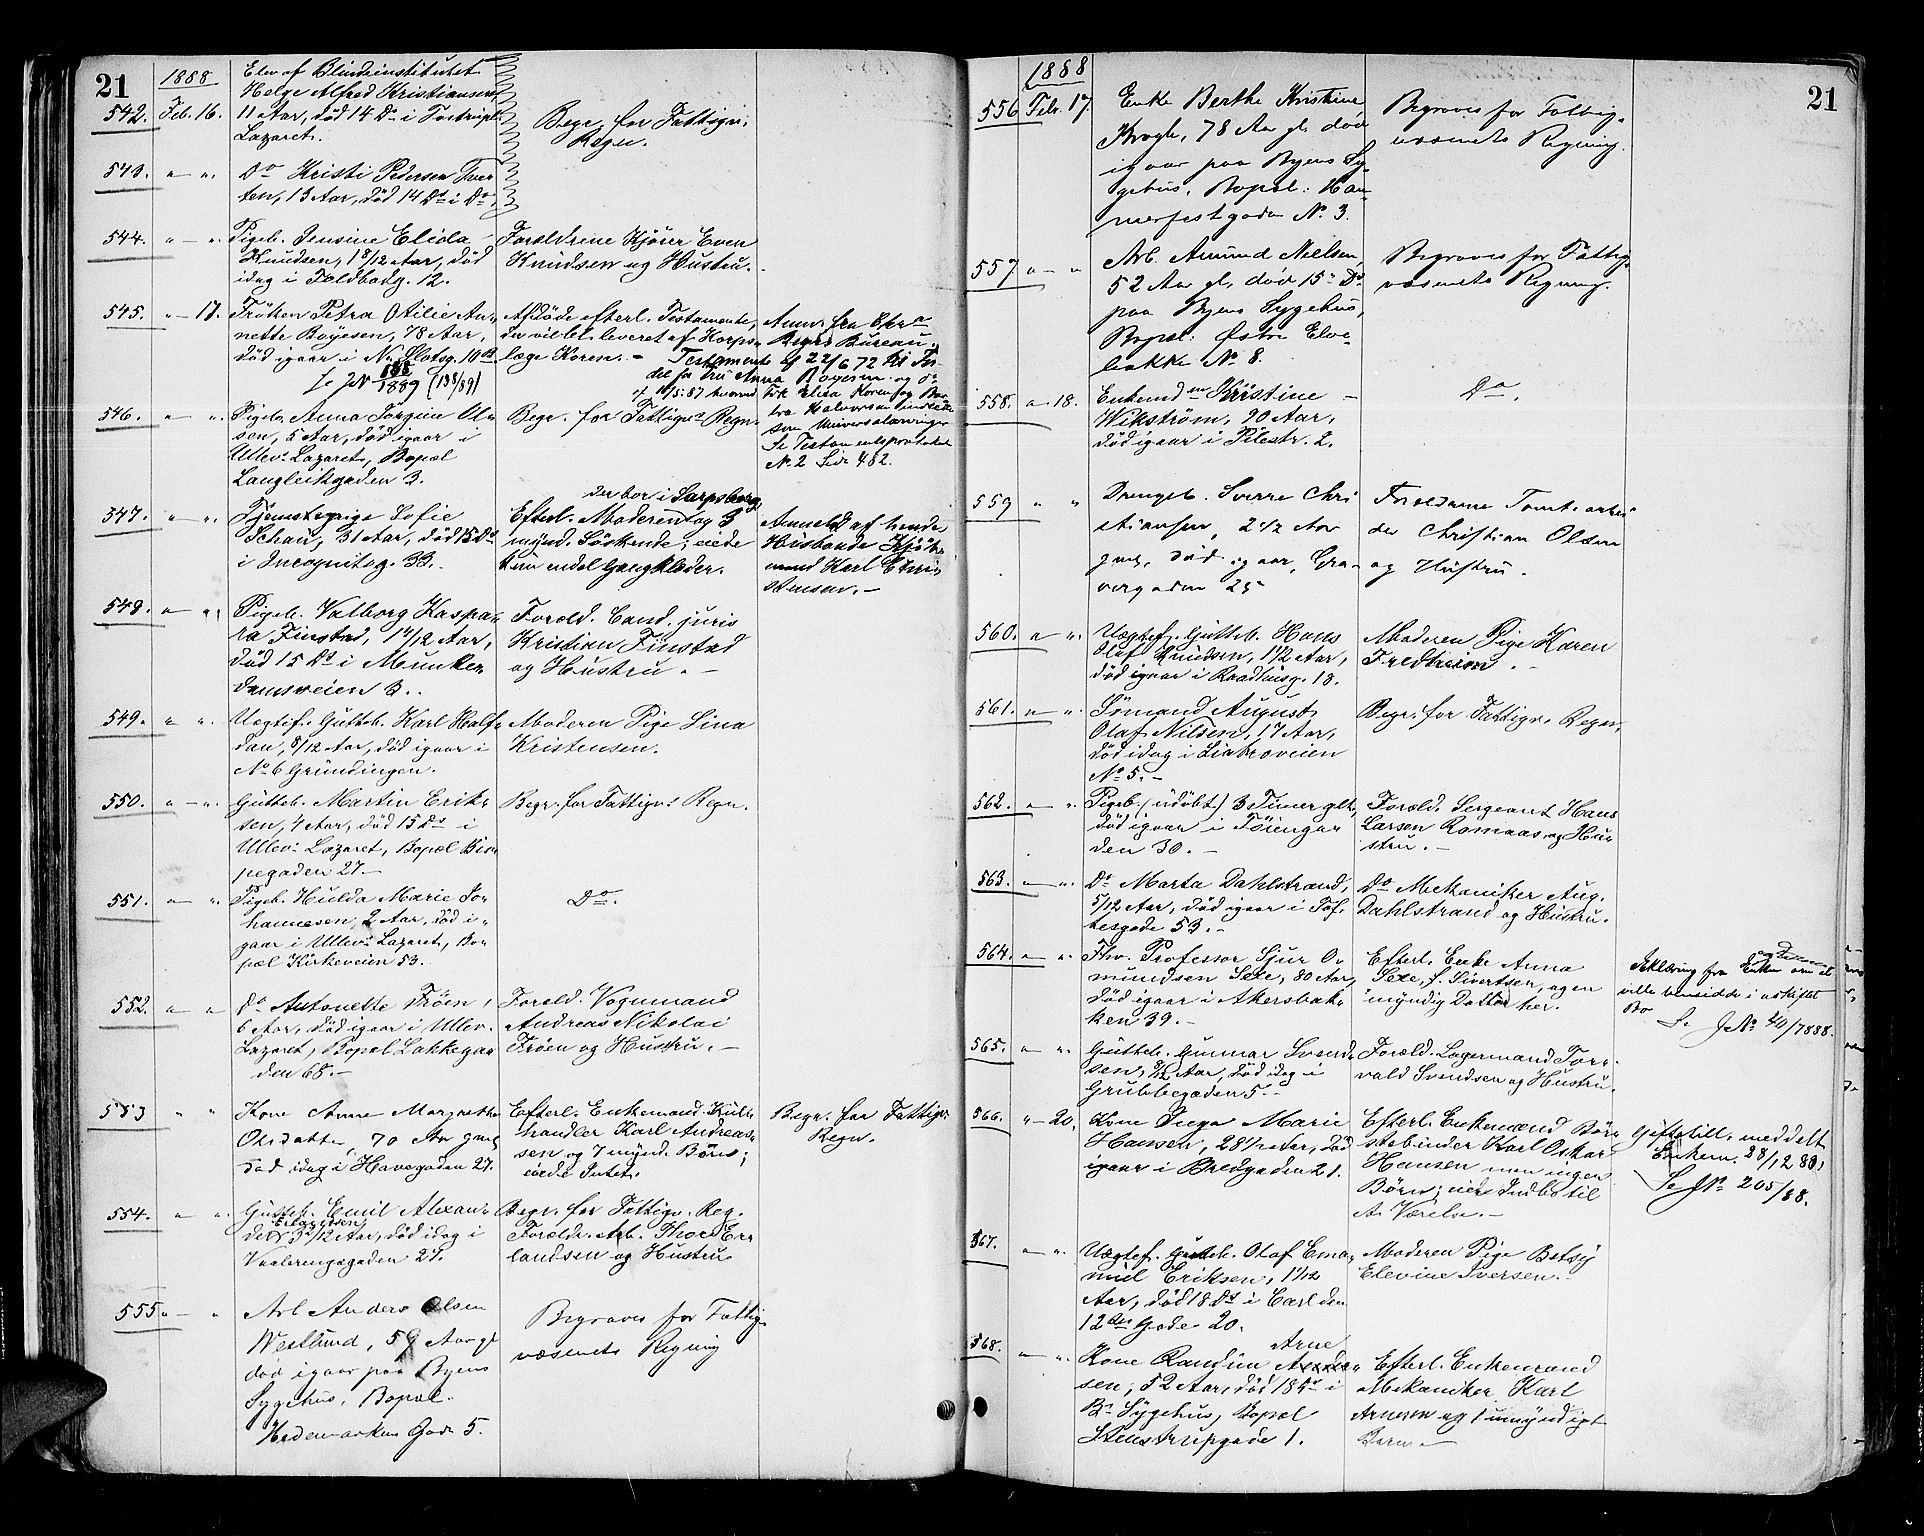 21
1888
542. Feb. 16.
Elev af Blindeinstitutet
Helge Alfred Kristiansen
11 Aar, død 14 Ds i
Lazaret.
Begr. for Fattigv.
Regn.
543. " — ".
Do Kristi Pedersen Tver
ten, 13 Aar, død 14 Ds i Do.
544. " — ".
Pigeb. Jensine Elida
Knudsen, 1 8/12 Aar, død
idag i Feldbadg. 12.
Forældrene Kjører Even
Knudsen og Hustru.
545. " — 17.
Frøken Petra Otilie An-
nette Boyesen, 78 Aar,
død igaar i N. Slotsg. 10
Se JN 138/1889 (138/89)
Afdøde efterl. Testamente,
der vil bli leveret af Korps-
læge Koren. —
Anm. fra Chra
Begr. Bureau.
Testamente af 22/6 72 til
Frk Elisa Koren og
som Universalarvinger
Se Testamentsprotokol
No. 2 Side 482.
546. " — ".
Pigeb. Anna Jørgine Ol-
sen, 5 Aar, død igaar i
Ullev. Lazaret, Bopæl
Langleikgaden 3.
Begr. for Fattigv. Regn.
547. " — ".
Tjenestepige Sofie
Schau, 31 Aar, død 15 Ds
i Incognitog. 33.
der bor i Sarpsborg
Efterl. Moderen og 3
mynd. Søskende; eiede
kun endel Gangklæder.
Anmeld af hendes
Husbonde Kjøb-
mand Karl Chri-
stensen. —
548. " — ".
Pigeb. Valborg Kaspa-
ra Finstad, 1 11/12 Aar,
død 15 Ds i Munke-
damsveien 3.
Foræld. Cand. juris
Kristian Finstad
og Hustru. —
549. " — ".
Uægtef. Gutteb. Karl Half-
dan, 8/12 Aar, død igaar i
No 6 Grundingen.
Moderen Pige Lina
Kristensen.
550. " — ".
Gutteb. Martin Erik-
sen, 4 Aar, død 15 Ds i
Ullev. Lazaret, Bopæl Bir-
pegaden 27. —
Begr. for Fattigv. Regn.
551. " — ".
Pigeb. Hulda Marie Jo-
hannesen, 2 Aar, død i-
gaar i Ullev. Lazaret, Bo-
pæl Kirkeveien 53.
Do.
552. " — "
Do Antonette Frøen,
6 Aar, død igaar i Ullev.
Lazaret, Bopæl Lakkega-
den 68. —
Foræld. Vognmand
Andreas Nikolai
Frøen og Hustru. —
553 " "
Kone Anne Margrethe
Olsdatter, 70 Aar gml
død idag i Havegaden 27.
Efterl. Enkemand. Kul-
handler Karl Andreas-
sen og 7 mynd. Børn;
eiede Intet.
Begr. for Fattigv.
Regn.
554. " — ".
Gutteb. Emil Alexan-
der Erlandsen 3 2/12 Aar, død idag i
Vaalerengagaden 27.
Begr. for Fattigv. Reg.
Foræld. Arb. Thor Er-
landsen og Hustru
555 " — "
Arb Anders Olsen
Westlund, 59 Aar gl
død igaar paa Byens
Sygehus, Bopæl.
Hedemarkens Gade 5.
Begraves for Fattig-
væsenets Regning
1888
21
556 Feb. 17.
Enke Berthe Kristine
Krogh, 78 Aar gl. død
igaar paa Byens Sy-
gehus, Bopæl: Ham-
merfestgaden No. 3.
Begraves for Fattig-
væsenets Regning.
557 " — "
Arb. Amund Nielsen,
52 Aar gl, død 15 Ds
paa Byens Sygehus,
Bopæl: Østre Elve-
bakke No 8.
Begraves for Fattig-
væsenets Regning.
558. " 18.
Enkemden Kristine
Wikstrøm, 90 Aar,
død igaar i Pilestr. 2.
Do.
559 " "
Drengeb. Sverre Chri
stiansen, 2 1/2 Aar
gml, død igaar, Gra-
vergaden 25
Forældrene Tomtearbei-
der Christian Olsen
og Hustru.
560. " — ".
Uægtef. Gutteb. Hans
Olaf Knudsen, 1 1/2 Aar,
død igaar i Raadhusg. 18.
Moderen Pige Karen
Fredheim. —
561. " — ".
Sømand August
Olaf Nilsen, 17 Aar,
død idag i Liabroveien
No 5. —
Begr. for Fattigv. Regn.
562. " — ".
Pigeb. (udøbt) 3 Timer glt,
død igaar i Føiengar
den 30. —
Foræld. Sergeant Hans
Larsen Romaas og Hu-
stru. —
563. " — ".
Do Marta Dahlstrand,
5/12 Aar, død igaar i Tof-
tesgade 53. —
Do Mekaniker Aug.
Dahlstrand og Hustru.
564. " — ".
Fhv. Professor Sjur A-
mundsen Sexe, 80 Aar,
død igaar i Akersbak-
ken 39. —
Efterl. Enke Anna
Sexe, f. Sivertsen, og en
myndig Datter her.
Erklæring fra Enken om at
ville hensidde i uskiftet
Bo
Se JNo 40/1888.
565. " — ".
Gutteb. Gunnar Svend-
sen, Aar, død idag i
Grubbegaden 5. —
Foræld. Lagermand Tor-
vald Svendsen og Hustru.
566. " — 20.
Kone Inga Marie
Hansen, 28 1/2 Aar, død
igaar i Bredgaden 21.
Efterl. Enkemand Bør-
stebinder Karl Oskar
Hansen men ingen
Børn; eiede Indbo til
et Værelse. —
Giftetill. meddelt
Enkem. 28/12 88.
Se JN. 205/88.
567. " — ".
Uægtef. Gutteb. Olaf Ema-
nuel Eriksen, 1 1/12
Aar, død 18 Ds i Carl den
12tes Gade 20.
Moderen Pige Betsy
Elevine Iversen. —
568. " — ".
Kone Randine Arne
sen, 52 Aar, død 18 Ds i
B. Sygehus, Bopæl
Stenstrupgade 1.
Efterl. Enkemand
Mekaniker Karl
Arnesen og 1 umyndigt
Barn. —